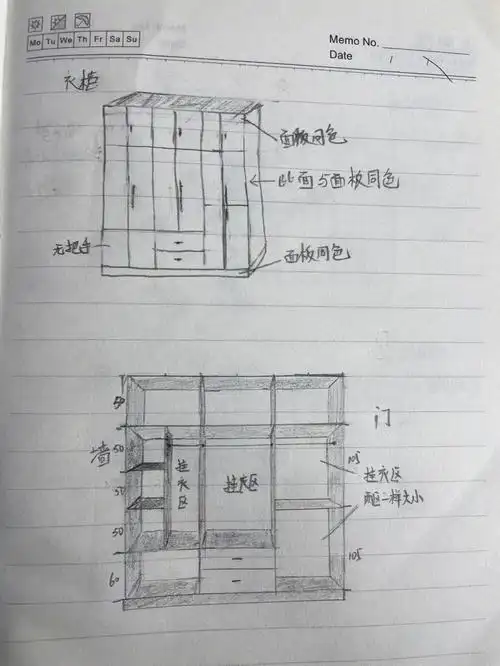 Mo Tu We Th Fr Sa Su
Memo No.
Date
衣柜
面板同色
此面与面板同色
无把手
面板同色
50
门
墙
50
挂衣区
挂衣区
105
挂衣区
两区一样大小
50
50
60
105